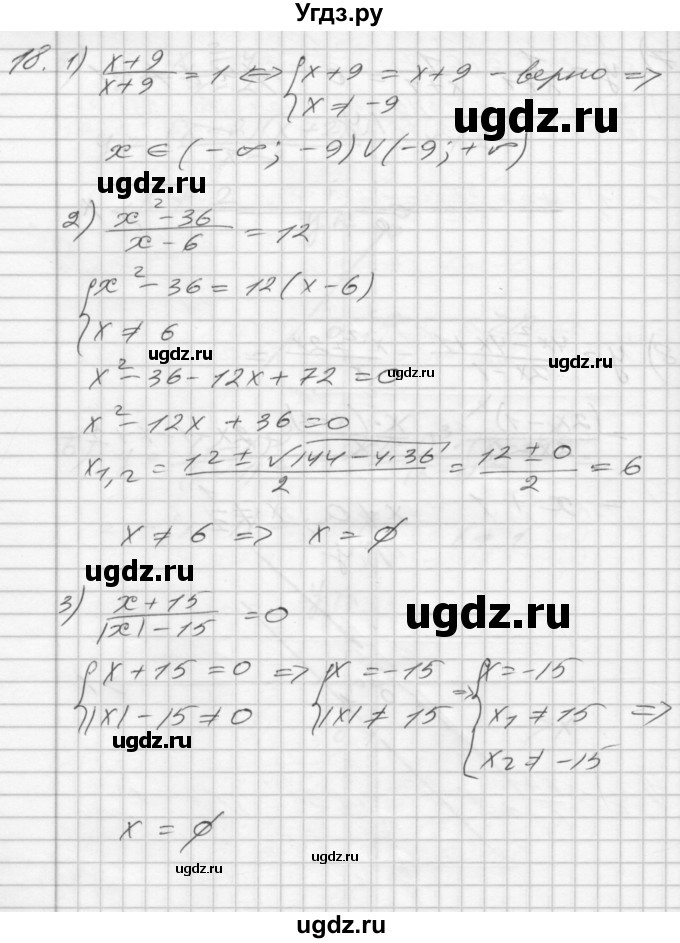 Угдз.ру
18. 1) (x+9)/(x+9) = 1 <=> { x+9 = x+9 – верно =>
x ≠ -9
ugdz.ru
x ∈ (-∞; -9) ∪ (-9; +∞)
ugdz.ru
2) (x² - 36)/(x - 6) = 12
{ x² - 36 = 12(x - 6)
x ≠ 6
ugdz.ru
ugdz.ru
x² - 36 - 12x + 72 = 0
ugdz.ru
x² - 12x + 36 = 0
x₁,₂ = (12 ± √(144 - 4·36))/2 = (12 ± 0)/2 = 6
x ≠ 6 => x = ∅
ugdz.ru
3) (x + 15)/(|x| - 15) = 0
ugdz.ru
{ x + 15 = 0 => { x = -15 => { x = -15
|x| - 15 ≠ 0 |x| ≠ 15 x₁ ≠ 15 =>
ugdz.ru
x₂ ≠ -15
x = ∅
ugdz.ru
ugdz.ru
ugdz.ru